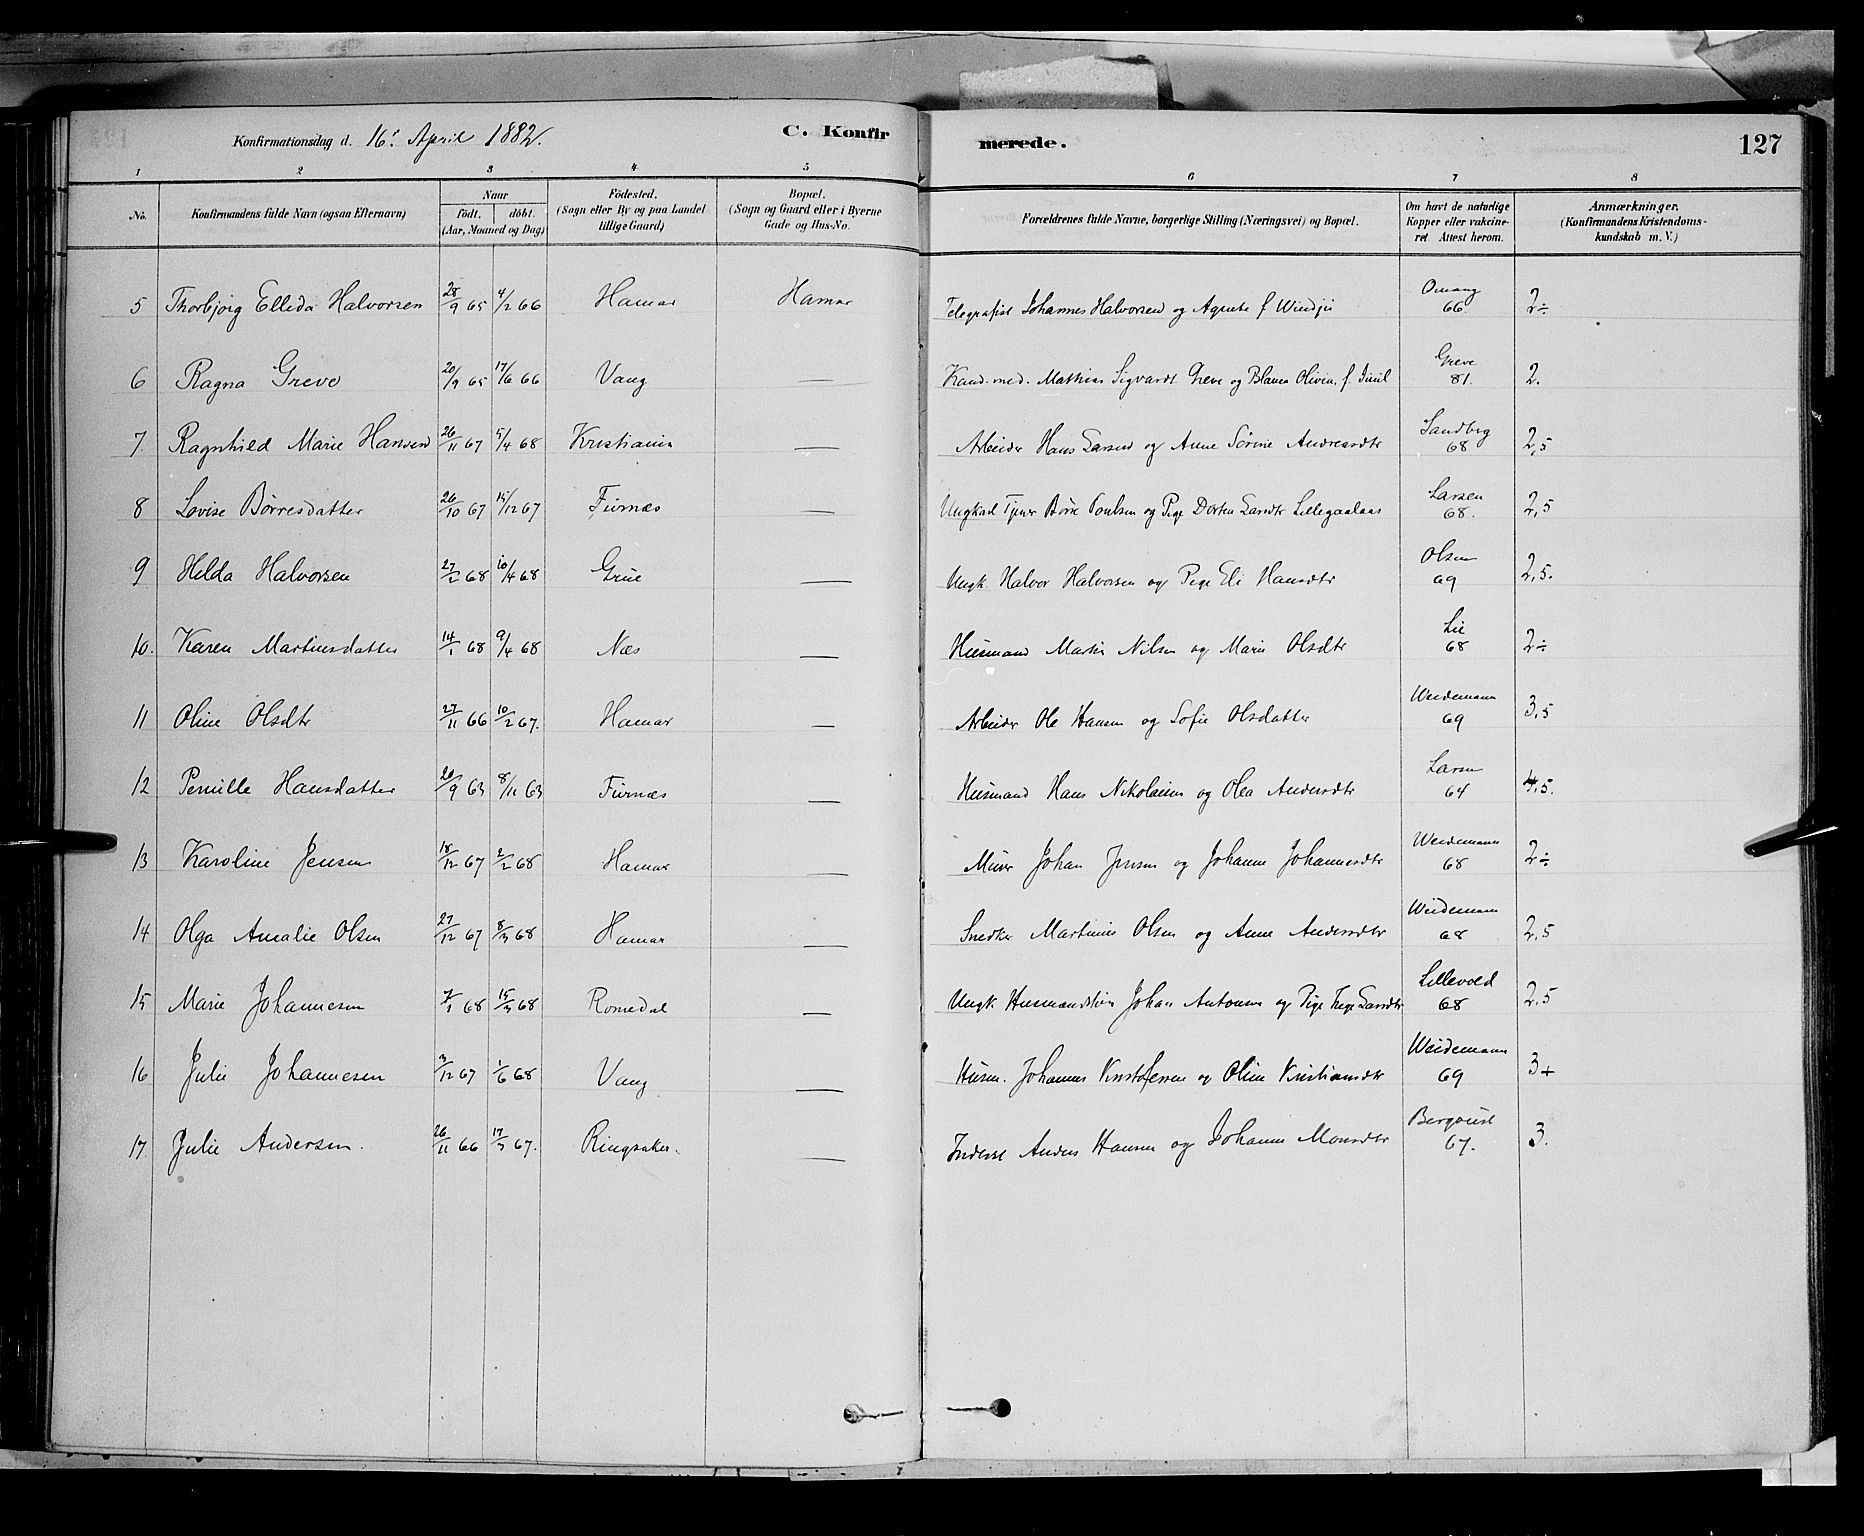 Konfirmationsdag d. 16' April 1882. C. Konfirmerede. 127
1 2 3 4 5 6 7 8
No. Konfirmandens fulde Navn (ogsaa Efternavn) Naar födt. döbt. (Aar, Maaned og Dag) Födested. (Sogn eller By og paa Landet tillige Gaard) Bopæl. (Sogn og Gaard eller i Byerne Gade og Hus-No. Forældrenes fulde Navne, borgerlige Stilling (Næringsvei) og Bopæl. Om havt de naturlige Kopper eller vakcineret. Attest herom. Anmærkninger. (Konfirmandens Kristendomskundskab m. V.)
5 Thorbjørg Elleda Halvorsen 28/9 65 4/2 66 Hamar Hamar Telegrafist Johannes Halvorsen og Agnete f Windju Omang 66 2÷
6 Ragna Greve 20/9 65 17/6 66 Vang — Kand. med. Mathias Sigvardt Greve og Blanca Olivia, f. Juul Greve 81. 2.
7. Ragnhild Marie Hansen 26/11 67 5/4 68 Kristiania — Arbeider Hans Larsen og Anne Sørine Andreasdtr Sandberg 68 2,5
8 Lovise Børresdatter 26/10 67 15/12 67 Furnæs — Ungkarl Tjener Børre Poulsen og Pige Dorthea Larsdtr Lillegaalaas Larsen 68. 2,5
9 Hilda Halvorsen 27/2 68 10/4 68 Grue — Ungk. Halvor Halvorsen og Pige Eli Hansdtr Olsen 69 2,5.
10. Karen Martinsdatter 14/1 68 9/4 68 Næs — Husmand Martin Nilsen og Marie Olsdtr Lie 68 2÷
11 Oline Olsdtr 27/11 66 10/2 67. Hamar — Arbeider Ole Hansen og Sofie Olsdatter Weidemann 69 3,5
12 Pernille Hansdatter 20/9 63 8/11 63 Furnæs — Husmand Hans Nikolaisen og Olea Andersdtr Larsen 64 4,5.
13 Karoline Jensen 18/12 67 2/2 68 Hamar — Murer Johan Jensen og Johanne Johannesdtr Weidemann 68 2÷
14 Olga Amalie Olsen 27/12 67 8/3 68 Hamar — Snedker Martinius Olsen og Anne Andersdtr Weidemann 68 2,5
15 Marie Johannesen 7/1 68 15/3 68 Romedal — Ungk. Johan Antonsen og Pige Larsdtr Lillevold 68 2,5
16 Julie Johannesen 3/12 67 1/6 68 Vang — Husm. Johannes Kristofersen og Oline Kristiansdtr Weidemann 69 3+
17. Julie Andersen. 26/11 66 17/3 67. Ringsaker. — Inderst Anders Hansen og Johanne Monsdtr Bergqvist 67. 3.